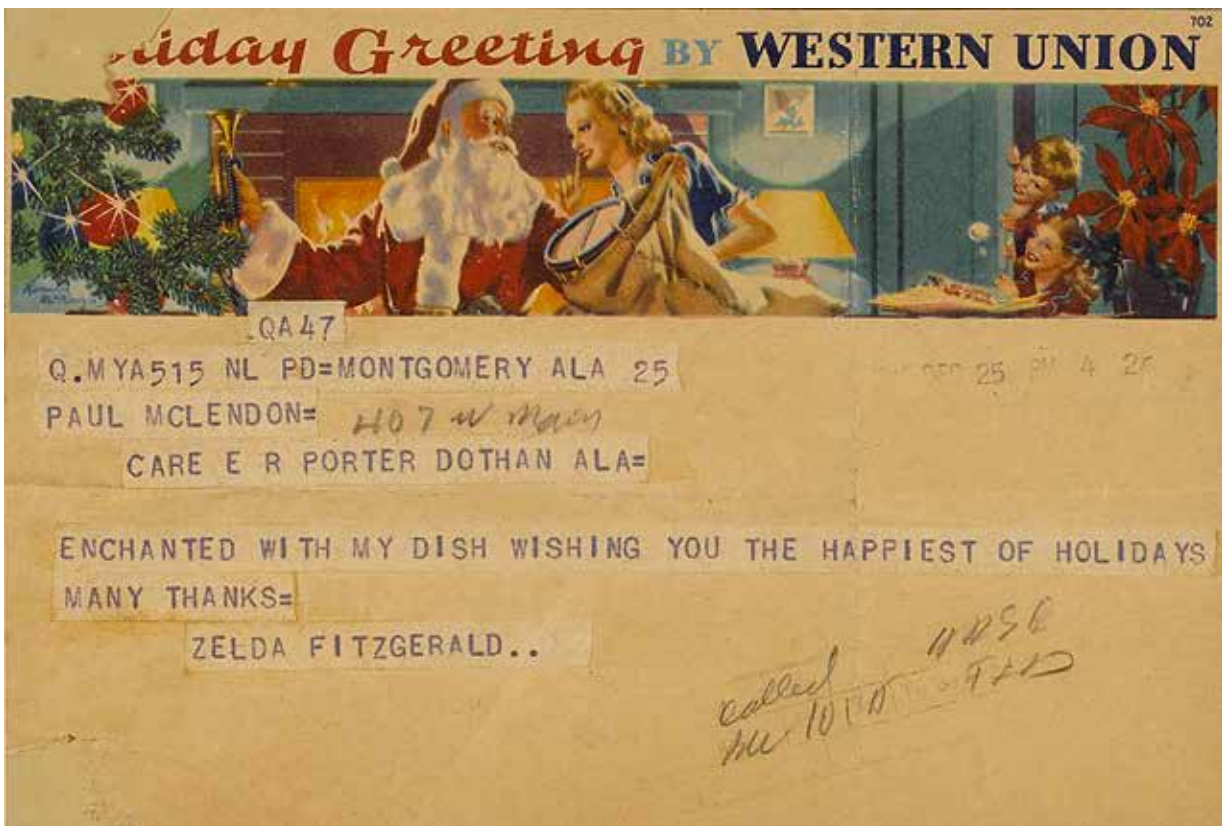 702
liday Greeting BY WESTERN UNION
.QA47
Q.MYA515 NL PD=MONTGOMERY ALA 25
DEC 25 PM 4 26
PAUL MCLENDON= 407 W Main
CARE E R PORTER DOTHAN ALA=
ENCHANTED WITH MY DISH WISHING YOU THE HAPPIEST OF HOLIDAYS
MANY THANKS=
ZELDA FITZGERALD..
called